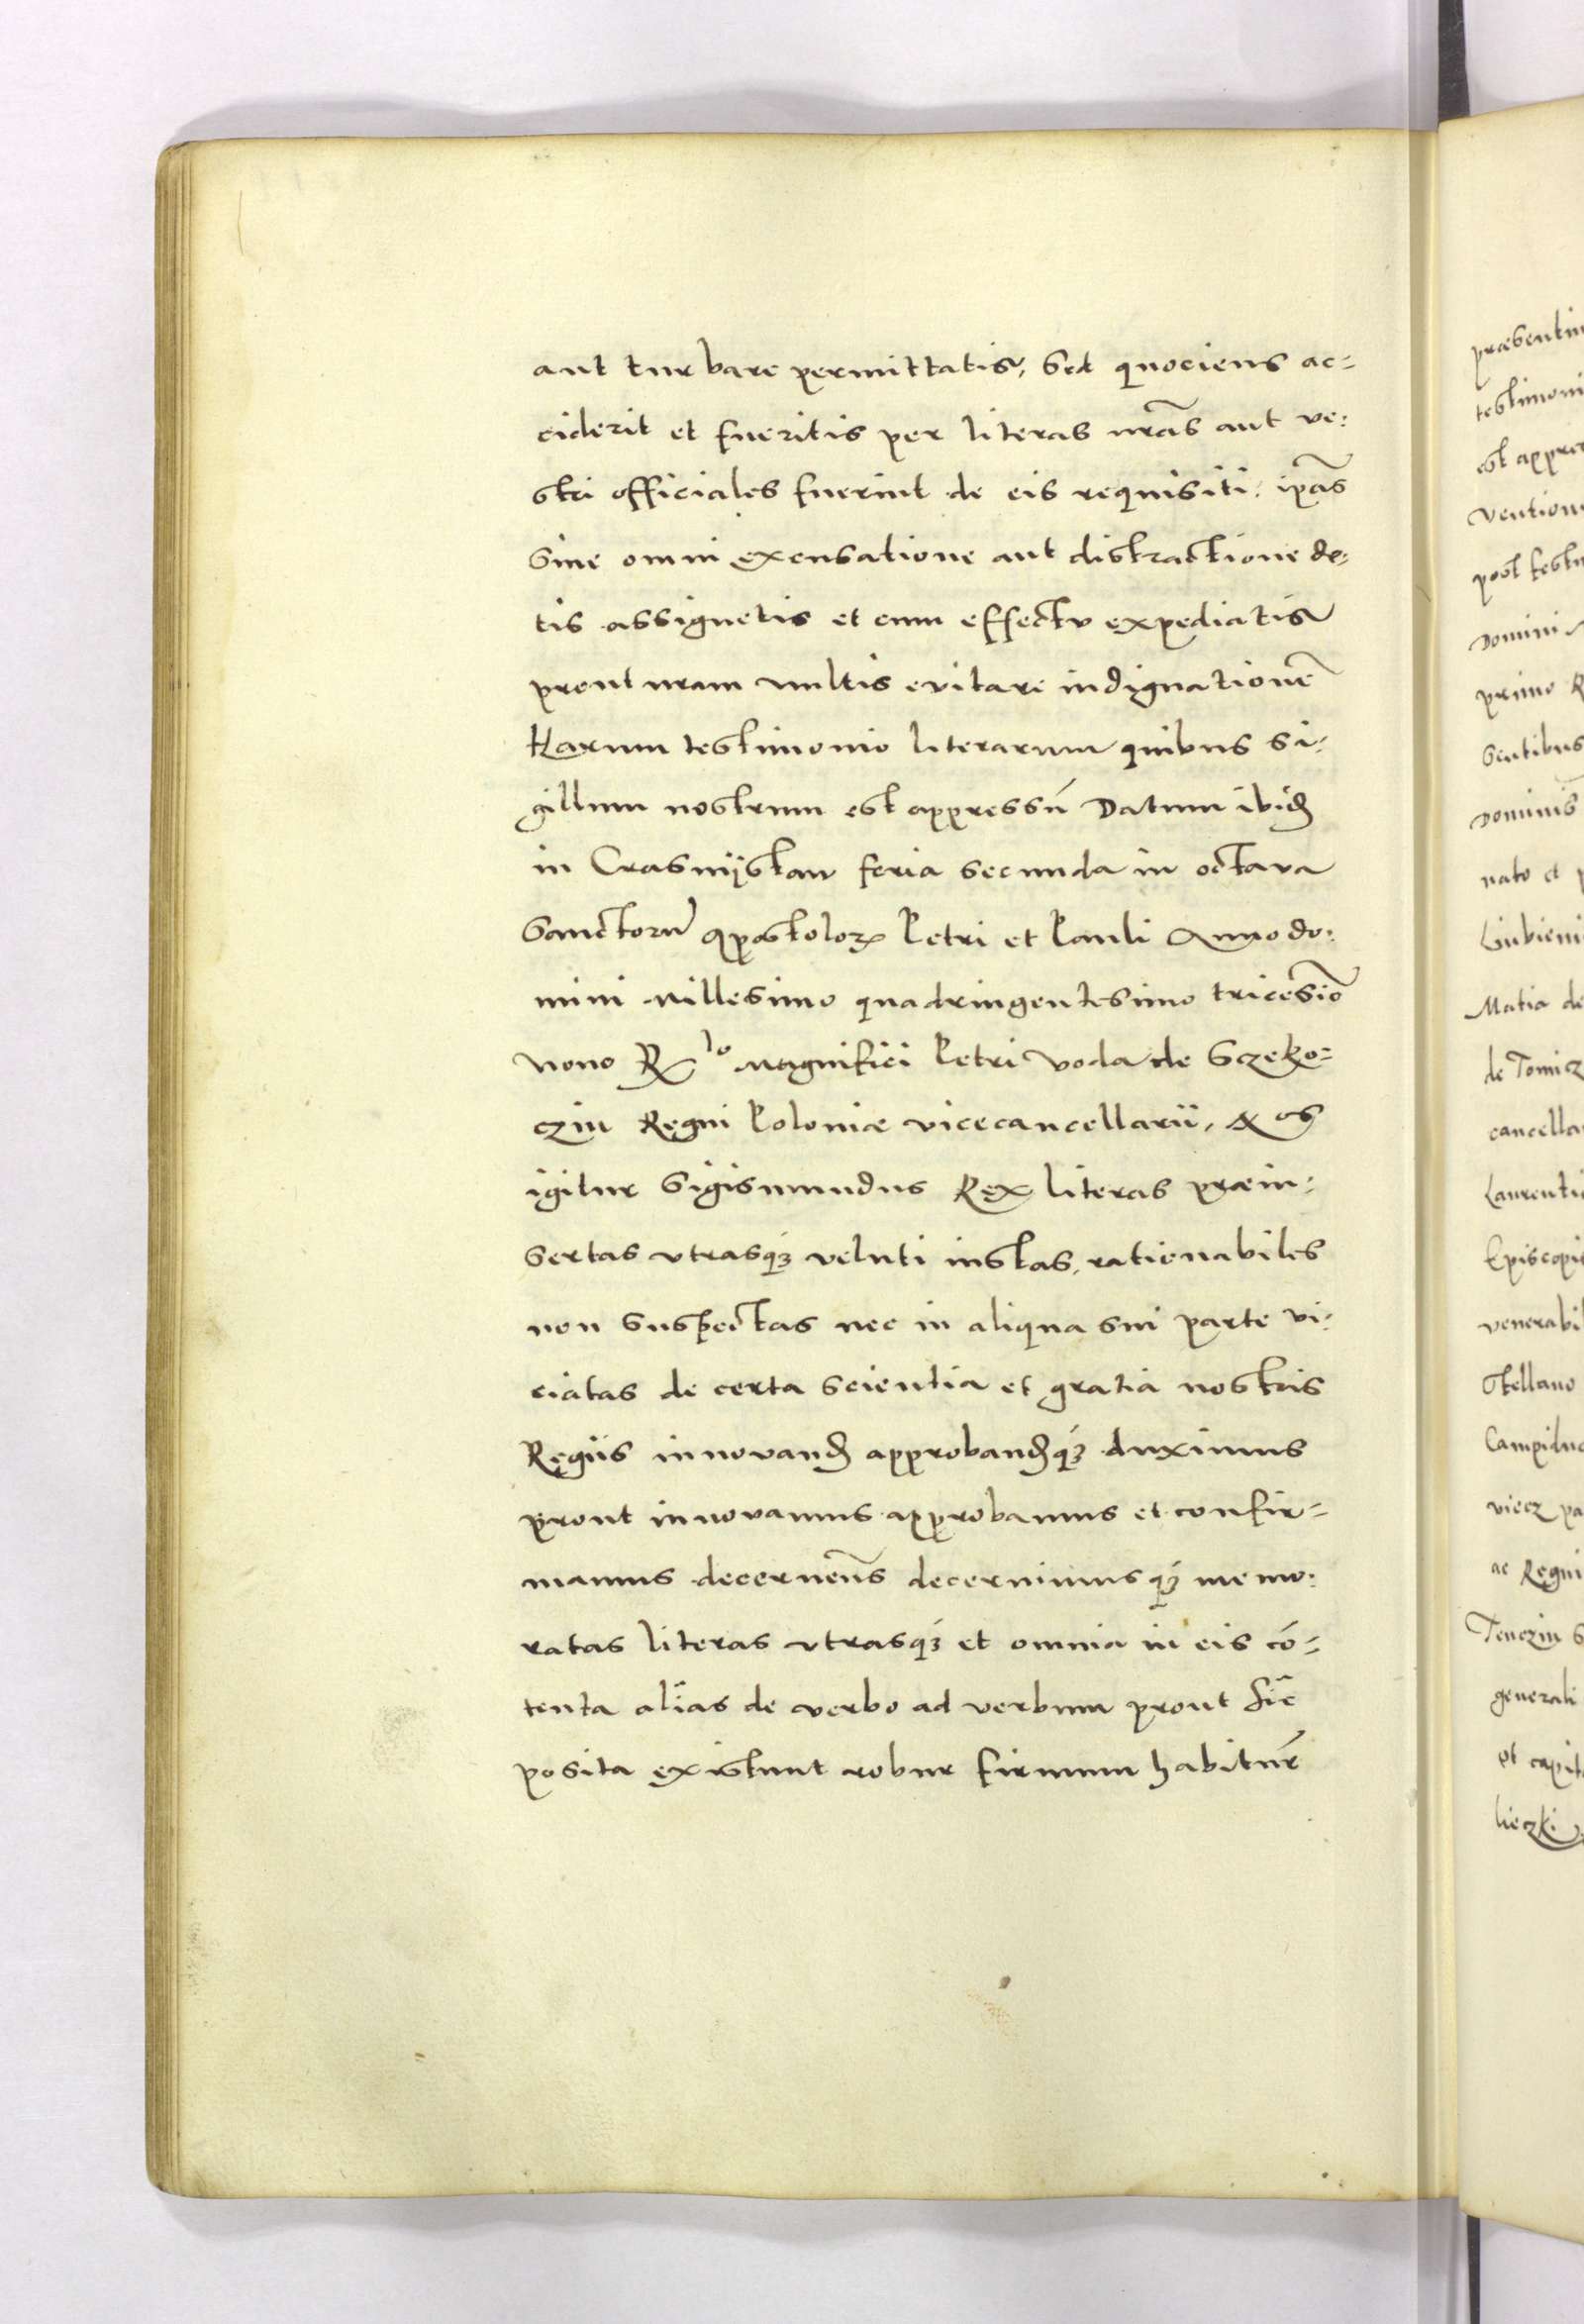 aut turbare permittatis, Sed quociens ac-
ciderit et fueritis per literas nr̃as aut ve-
stri officiales fuerint de eis requisiti, ip̃as
Sine omni excusatione aut distractione de-
tis assignetis et cum effectu expediatis
prout nram vultis evitare indignationẽ
Harum testimonio literarum quibus si-
gillum nostrum est appressũ Datum ibid̃
in Crasnijstaw feria secunda in octava
Sanctorũ apostolorꝝ Petri et Pauli Anno do-
mini millesimo quadringentesimo tricesiõ
nono Rˡᵒ Magnifici Petri voda de Sczeko-
czin Regni Poloniæ vicecancellarii, Nos
igitur Sigismundus Rex literas præin-
sertas vtrasqꝫ veluti iustas, rationabiles
non suspectas nec in aliqua sui parte vi-
ciatas de certa scientia et gratia nostris
Regiis innovand̃ approband̃qꝫ duximus
prout innovamus approbamus et confir-
mamus decernen̄s decernimusqꝫ memo-
ratas literas vtrasqꝫ et omnia in eis cõ-
tenta al̃ias de verbo ad verbum prout sic̃
posita existunt robur firmum habitur̃
præsentiu
testimoni
est appre
ventione
post festu
Domini
primo R
sentibus
Dominis
nato et
Lubieni
Matia de
de Tomicz
cancella
Laurenti
Episcopi
venerabi
stellano
Campiduc
viecz pa
ac Regni
Tenczin
generali
et capit
lieczki